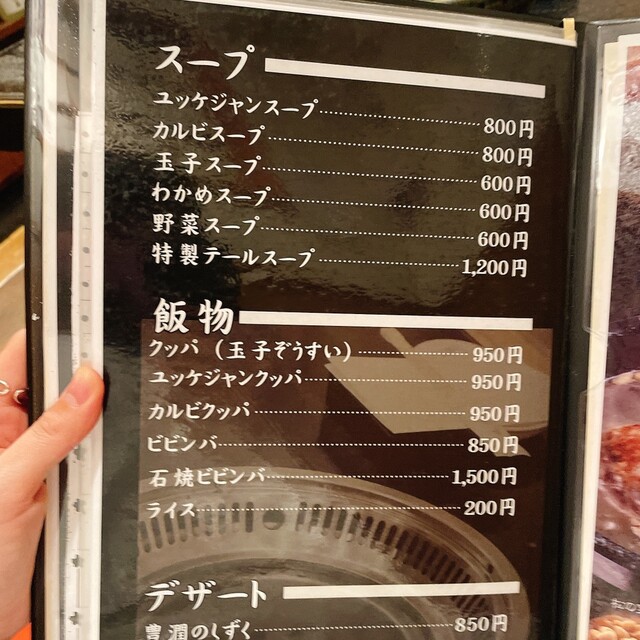 スープ
ユッケジャンスープ 800円
カルビスープ 800円
玉子スープ 600円
わかめスープ 600円
野菜スープ 600円
特製テールスープ 1,200円
飯物
クッパ（玉子ぞうすい） 950円
ユッケジャンクッパ 950円
カルビクッパ 950円
ビビンバ 850円
石焼ビビンバ 1,500円
ライス 200円
デザート
豊潤のしずく 850円